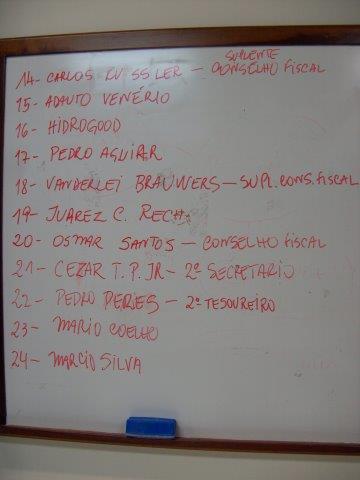 SUPLENTE
14- CARLOS RUSSLER - CONSELHO FISCAL
15- ADAUTO VENÉRIO
16- HIDROGOOD
17- PEDRO AGUIRR
18- VANDERLEI BRAUWERS - SUPL. CONS. FISCAL
19- JUAREZ C. RECH
20- OSMAR SANTOS - CONSELHO FISCAL
21- CEZAR T. P. JR - 2º SECRETARIO
22- PEDRO PERIES - 2º TESOUREIRO
23- MARIO COELHO
24- MARCIO SILVA